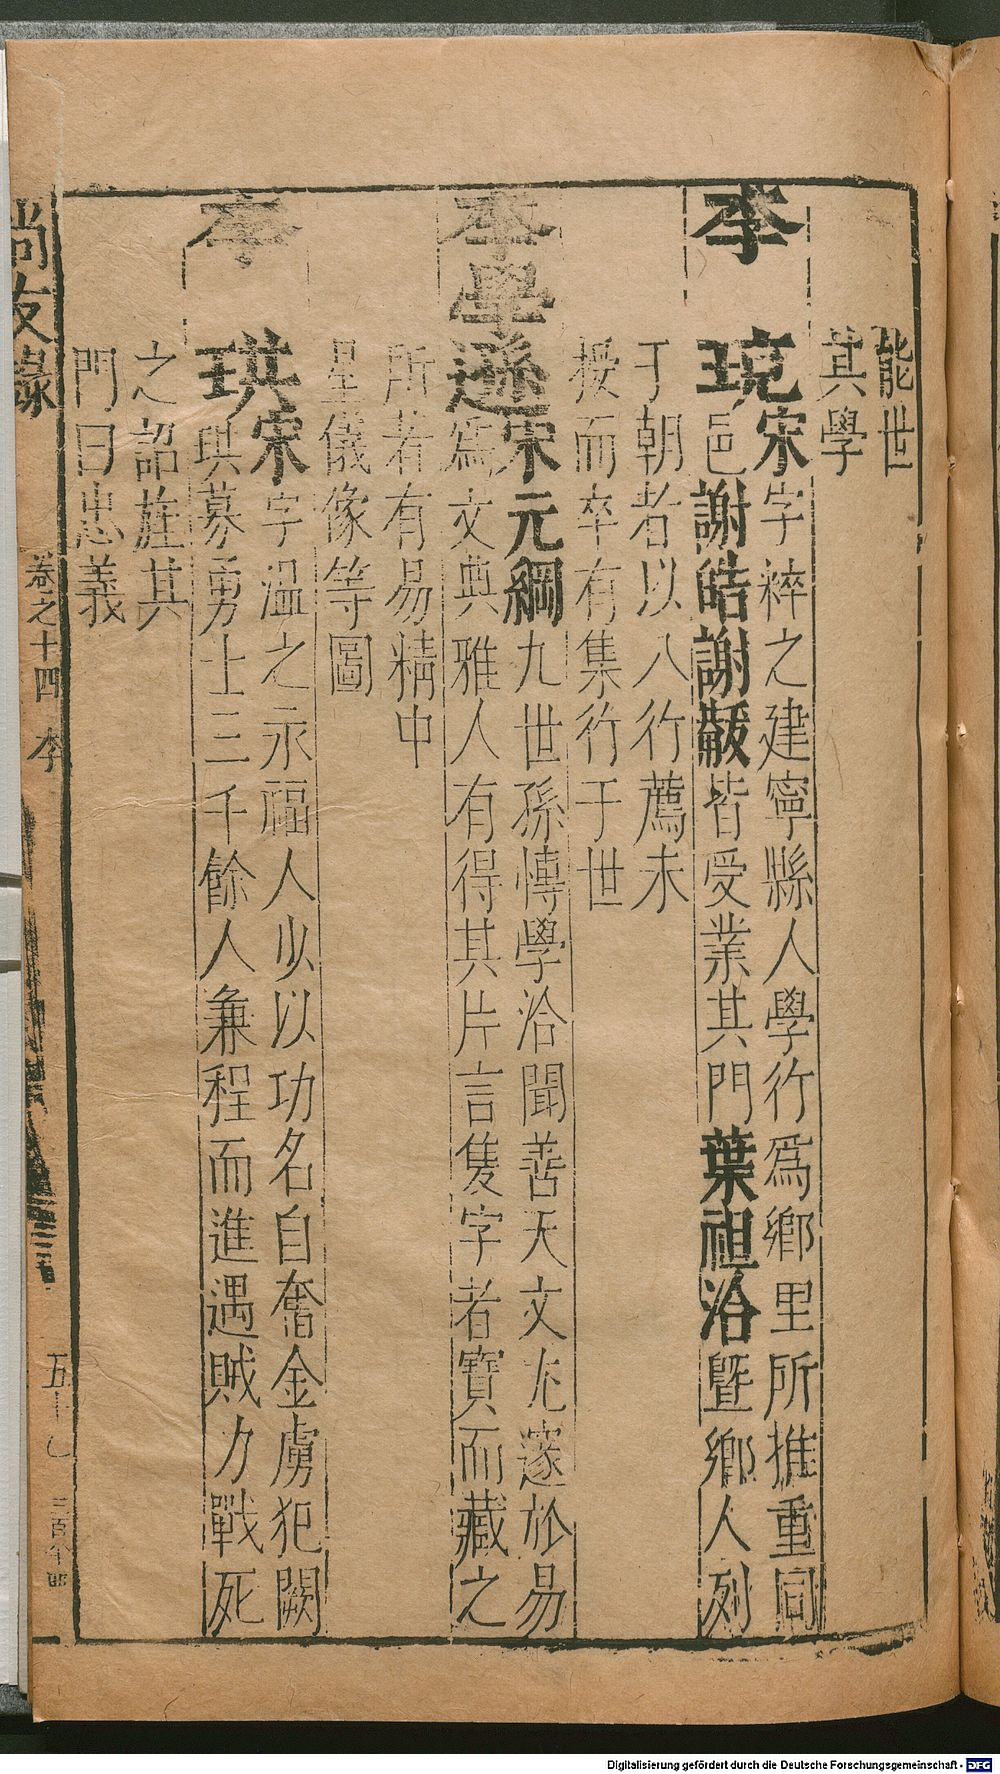 能世
其學
李　琥宋字粹之建寧縣人學行爲鄉里所推重同
邑謝皓謝皆受業其門葉祖洽暨鄉人列
于朝者以八行薦未
授而卒有集行于世
李學遜宋元綱九世孫博學洽聞善天文尤邃於易
爲文典雅人有得其片言隻字者寶而藏之
所著有易精中
星儀像等圖
李　珙宋字溫之永福人少以功名自奮金虜犯闕
珙募勇士三千餘人兼程而進遇賊力戰死
之詔旌其
門曰忠義
尚友錄　卷之十四　李　五十七
Digitalisierung gefördert durch die Deutsche Forschungsgemeinschaft - DFG